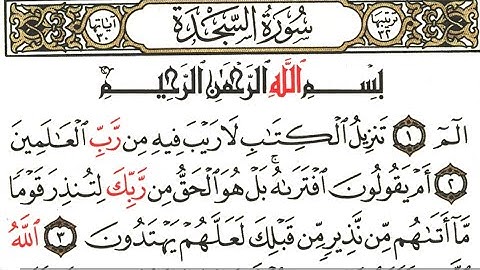 ترتيبها ٣٢ سُورَةُ السَّجْدَةِ آياتها ٣٠
بِسْمِ اللَّهِ الرَّحْمَٰنِ الرَّحِيمِ
الٓمٓ ١ تَنزِيلُ الْكِتَٰبِ لَا رَيْبَ فِيهِ مِن رَّبِّ الْعَٰلَمِينَ
٢ أَمْ يَقُولُونَ افْتَرَىٰهُ ۚ بَلْ هُوَ الْحَقُّ مِن رَّبِّكَ لِتُنذِرَ قَوْمًا
مَّآ أَتَىٰهُم مِّن نَّذِيرٍ مِّن قَبْلِكَ لَعَلَّهُمْ يَهْتَدُونَ ٣ اللَّهُ